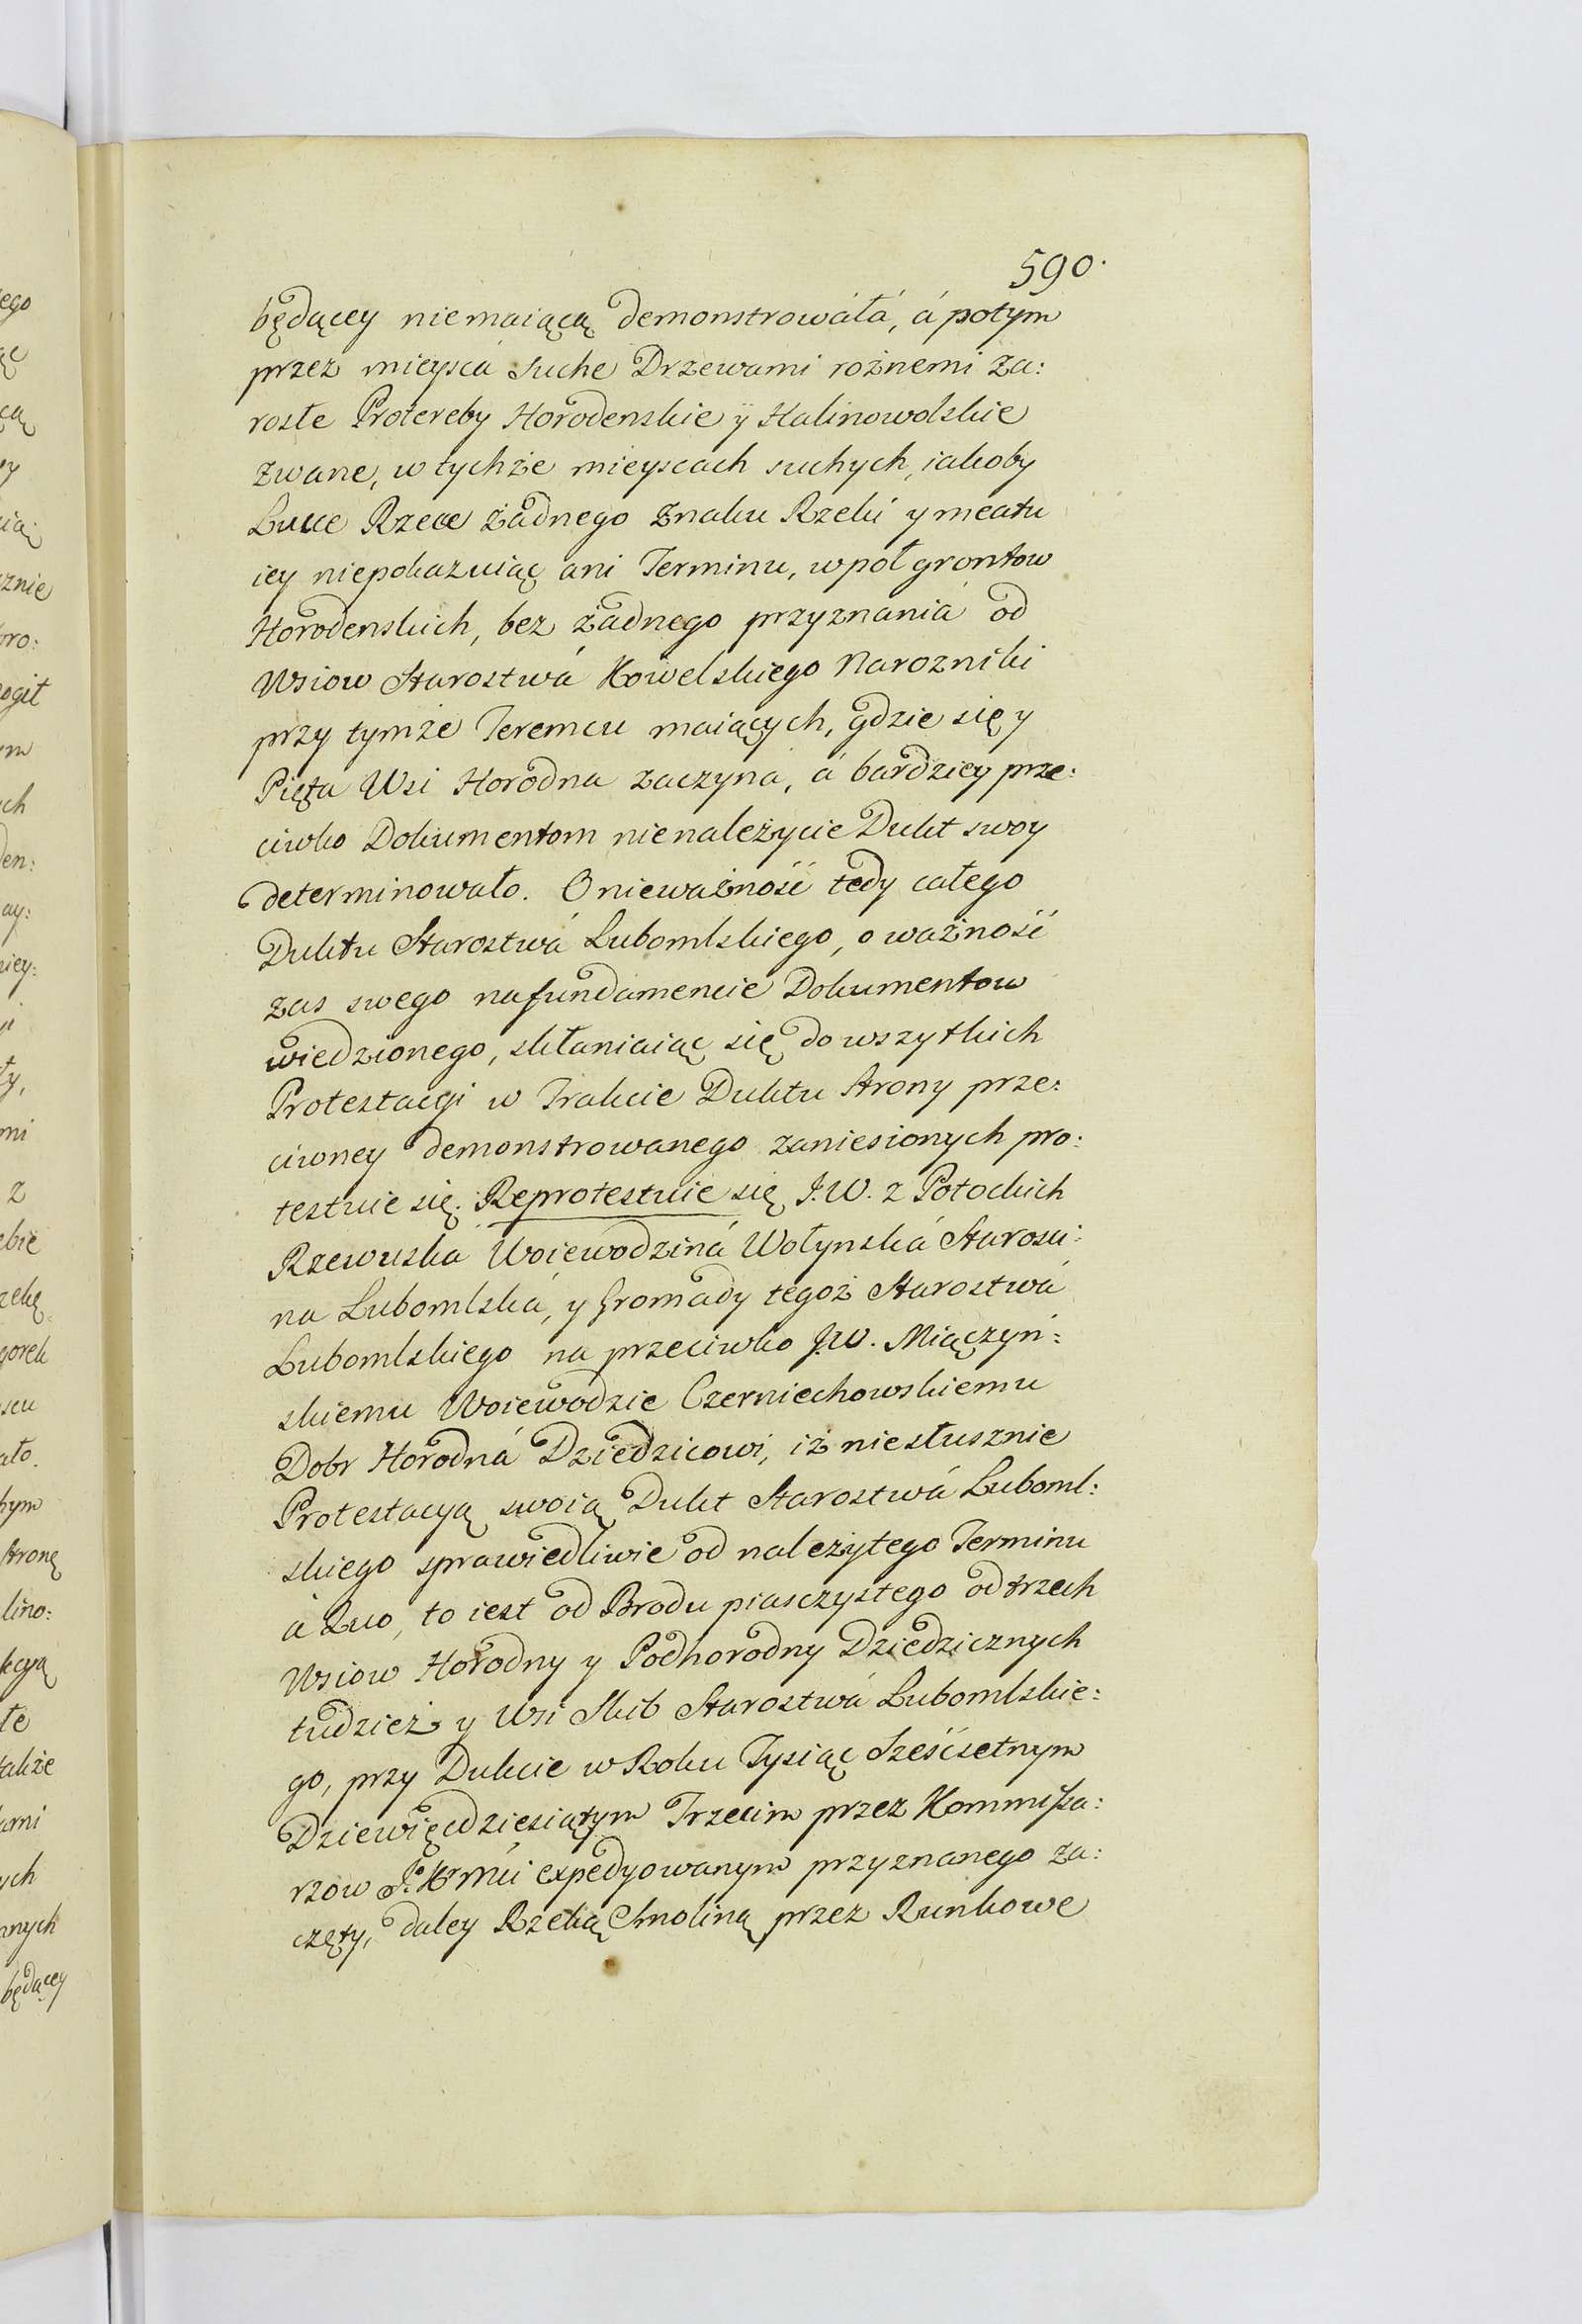 590.
będącey niemaiącą demonstrowáłá, á potym
przez mieysca suche Drzewami rożnemi za:
rosłe Protereby Horodenskie ÿ Kalinowolskie
zwane, w tychże mieyscach suchych, iakoby
Łucce Rzece żadnego Znaku Rzeki y meatu
iey niepokazuiąc ani Terminu, wpoł grontow
Horodenskich, bez żadnego przyznania od
Wsiow Starostwá Kowelskiego Narozniki
przy tymże Teremcu maiących, gdzie się y
Pięta Wsi Horodna zaczyna, á bardziey prze:
ciwko Dokumentom nienależycie Dukt swoy
determinowało. O nieważność tedy całego
Duktu Starostwá Lubomlskiego, o ważność
zas swego na fundamencie Dokumentow
wiedzionego, skłaniaiąc się do wszytkich
Protestacyi w Trakcie Duktu Strony prze:
ciwney demonstrowanego zaniesionych pro:
testuie się. Reprotestuie się J.W. z Potockich
Rzewuska Woiewodziná Wołynská Starosci:
na Lubomlská, y Gromady tegoż Starostwá
Lubomlskiego na przeciwko J.W. Miączyń:
skiemu Woiewodzie Czerniechowskiemu
Dobr Horodná Dziedzicowi, iż niesłusznie
Protestacyą swoią Dukt Starostwá Luboml:
skiego sprawiedliwie od należytego Terminu
á Quo, to iest od Brodu piasczystego od trzech
Wsiow Horodny y Podhorodny Dziedzicznych
tudzież y Wsi Skib Starostwá Lubomlskie:
go, przy Dukcie w Roku Tysiąc Sześćsetnym
Dziewięćdziesiątym Trzecim przez Kommissa:
rzow J. K. Mci expedyowanym przyznanego za:
częty, daley Rzeką Chnoliną przez Runkowe